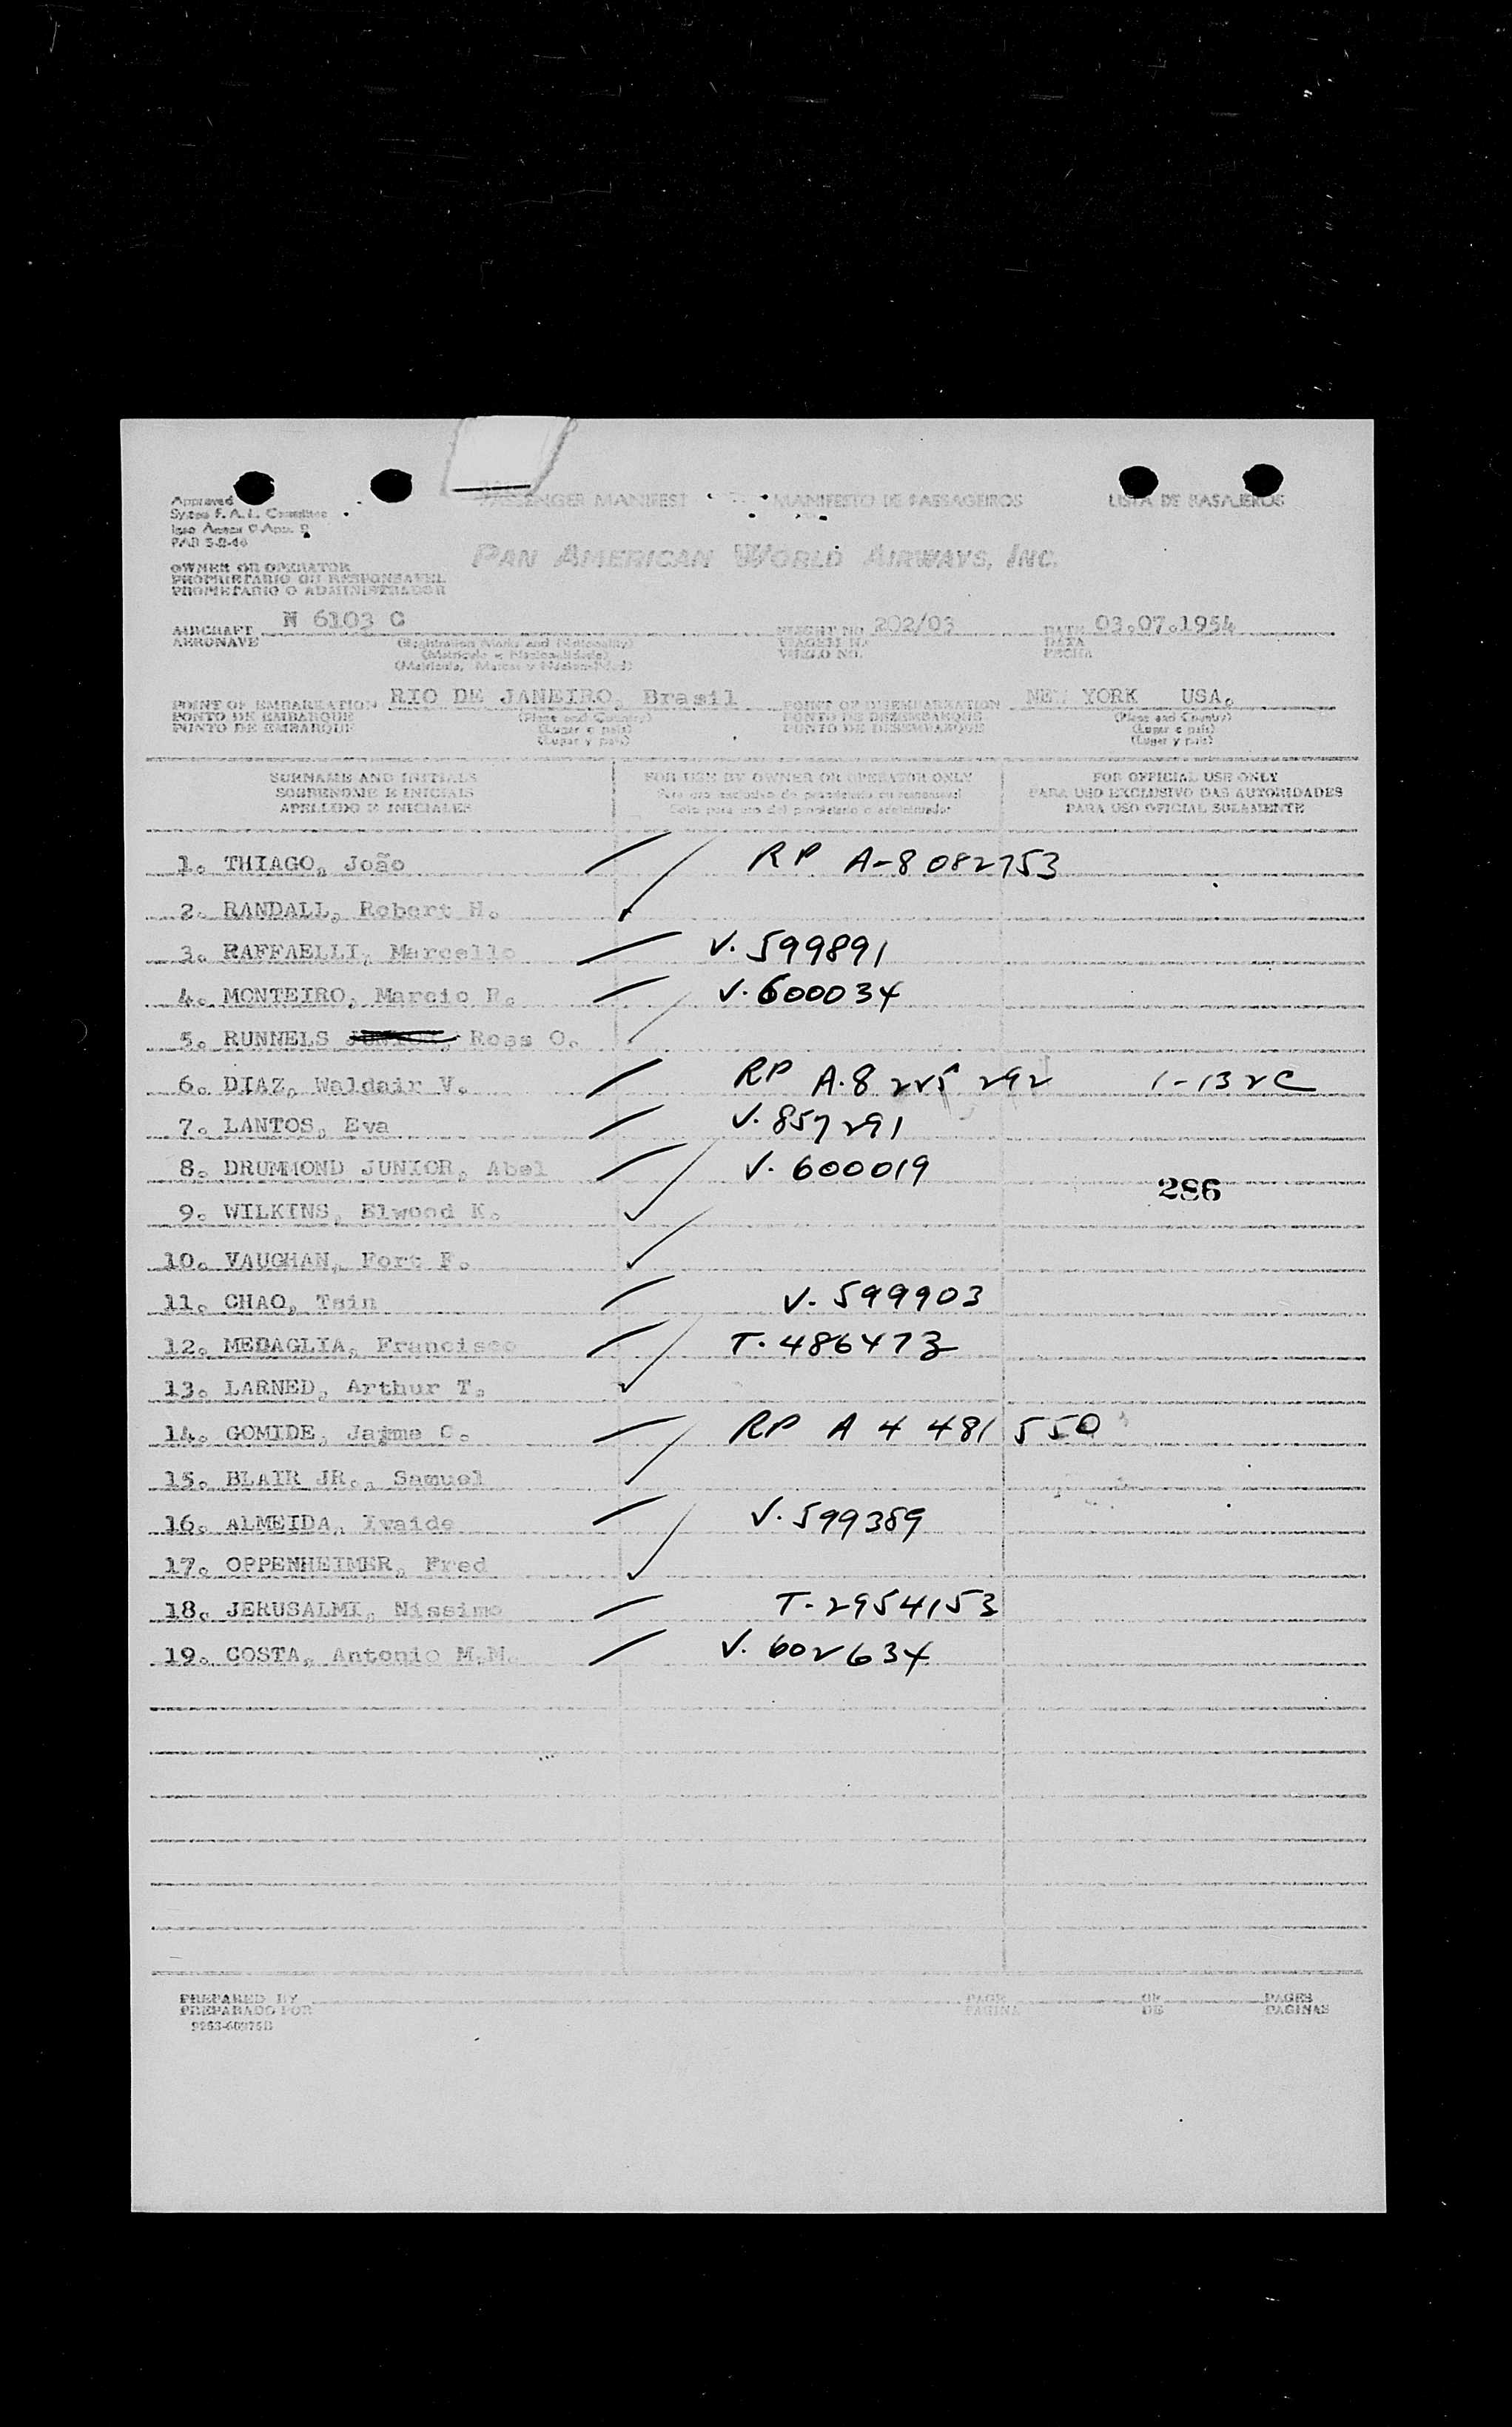 PASSENGER MANIFEST MANIFESTO DE PASSAGEIROS LISTA DE PASAJEROS
Approved
PAN AMERICAN WORLD AIRWAYS, INC.
OWNER OR OPERATOR
PROPRIETARIO OU RESPONSAVEL
PROPIETARIO O ADMINISTRADOR
AIRCRAFT N 6103 C FLIGHT NO 202/03 DATE 03.07.1954
AERONAVE VIAGEM N. DATA
(Registration Marks and Nationality) VUELO NO. FECHA
(Matricula e Nacionalidade)
POINT OF EMBARKATION RIO DE JANEIRO, Brasil POINT OF DISEMBARKATION NEW YORK USA.
PONTO DE EMBARQUE (Place and Country) PONTO DE DESEMBARQUE (Place and Country)
PUNTO DE EMBARQUE (Lugar e país) PUNTO DE DESEMBARQUE (Lugar e país)
(Lugar y país) (Lugar y país)
SURNAME AND INITIALS FOR USE BY OWNER OR OPERATOR ONLY FOR OFFICIAL USE ONLY
SOBRENOME E INICIAIS Para uso exclusivo do proprietario ou responsavel PARA USO EXCLUSIVO DAS AUTORIDADES
APELLIDO E INICIALES Solo para uso del propietario o administrador PARA USO OFICIAL SOLAMENTE
1. THIAGO, João RP A-8082753
2. RANDALL, Robert H.
3. RAFFAELLI, Marcello V. 599891
4. MONTEIRO, Marcio R. V. 600034
5. RUNNELS Ross O.
6. DIAZ, Waldair V. RP A.8 225 292 1-132C
7. LANTOS, Eva V. 857291
8. DRUMMOND JUNIOR, Abel V. 600019
286
9. WILKINS, Elwood K.
10. VAUGHAN, Fort F.
11. CHAO, Tsin V. 599903
12. MEDAGLIA, Francisco T. 486473
13. LARNED, Arthur T.
14. GOMIDE, Jayme C. RP A 4 481 550
15. BLAIR JR., Samuel
16. ALMEIDA, Ivaide V. 599389
17. OPPENHEIMER, Fred
18. JERUSALMI, Nissimo T. 2954153
19. COSTA, Antonio M.M. V. 602634
PREPARED BY PAGE OF PAGES
PREPARADO POR PAGINA DE PAGINAS